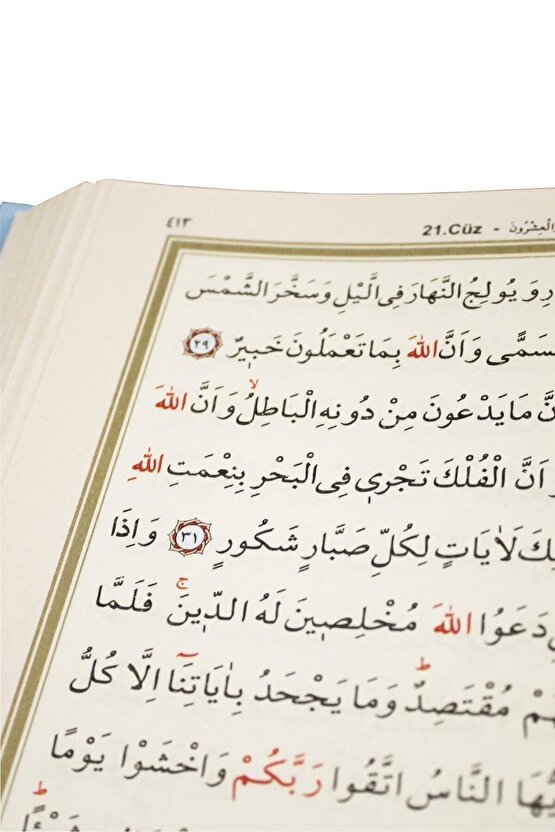 ٤١٣
21.Cüz - الْعِشْرُونَ
وَيُولِجُ النَّهَارَ فِي الَّيْلِ وَسَخَّرَ الشَّمْسَ
وَاَنَّ اللّٰهَ بِمَا تَعْمَلُونَ خَب۪يرٌ ﴿٢٩﴾
مَا يَدْعُونَ مِنْ دُونِهِ الْبَاطِلُۙ وَاَنَّ اللّٰهَ
اَنَّ الْفُلْكَ تَجْر۪ي فِي الْبَحْرِ بِنِعْمَتِ اللّٰهِ
لَاٰيَاتٍ لِكُلِّ صَبَّارٍ شَكُورٍ ﴿٣١﴾ وَاِذَا
دَعَوُا اللّٰهَ مُخْلِص۪ينَ لَهُ الدّ۪ينَۚ فَلَمَّا
مُقْتَصِدٌۜ وَمَا يَجْحَدُ بِاٰيَاتِنَٓا اِلَّا كُلُّ
النَّاسُ اتَّقُوا رَبَّكُمْ وَاخْشَوْا يَوْمًا